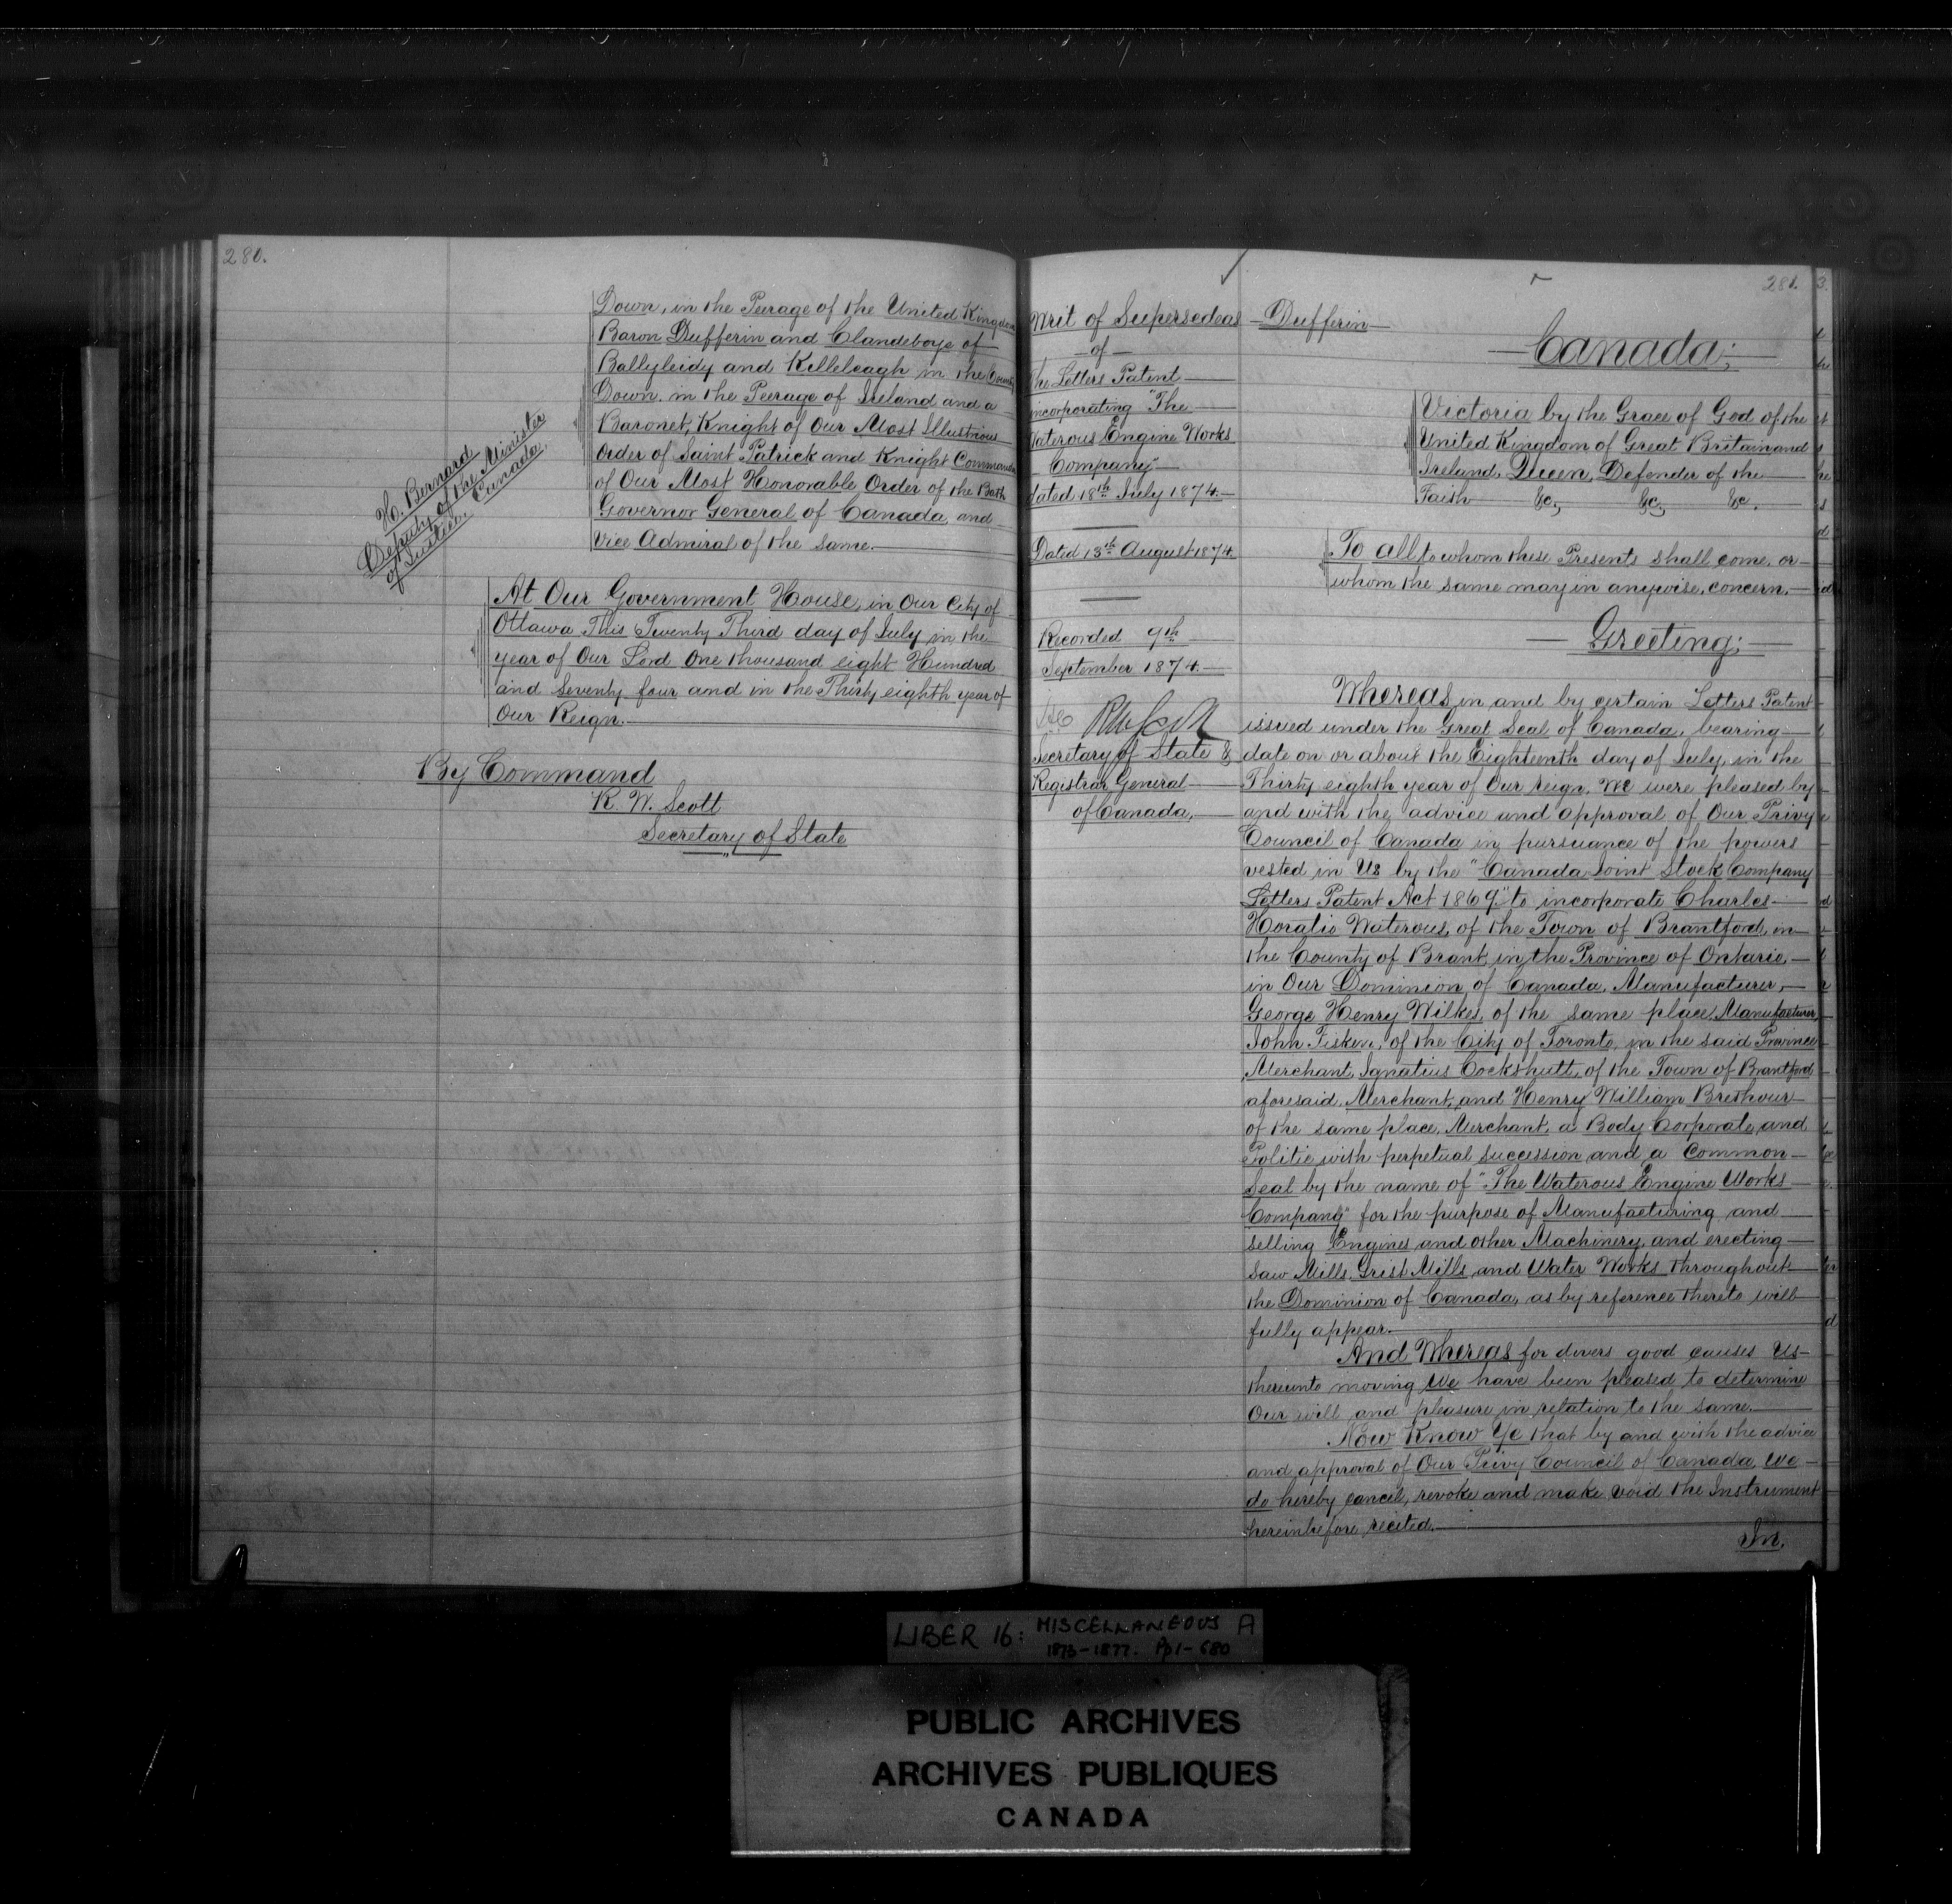 280.
Down, in the Peerage of the United Kingdom
Baron Dufferin and Clandeboye of
Ballyleidy and Killeleagh in the County
Down. in the Peerage of Ireland and a
Baronet, Knight of Our Most Illustrious
Order of Saint Patrick and Knight Commander
of Our Most Honorable Order of the Bath
Governor General of Canada, and
Vice Admiral of the same.
H. Bernard
Deputy of the Minister
of Justice. Canada
At Our Government House, in Our City of
Ottawa This Twenty Third day of July in the
year of Our Lord One thousand eight Hundred
and Seventy four and in the Thirty eighth year of
Our Reign.
By Command
R. W. Scott
Secretary of State
281.
Writ of Supersedeas
of
The Letters Patent
incorporating "The
Waterous Engine Works
Company"
dated 18th July 1874.
Dated 13th August 1874
Recorded 9th
September 1874.
RWScott
Secretary of State &
Registrar General
of Canada,
Dufferin
Canada;
Victoria by the Grace of God of the
United Kingdom of Great Britain and
Ireland, Queen, Defender of the
Faith &c, &c, &c.
To all to whom these Presents shall come, or
whom the same may in anywise, concern.
Greeting;
Whereas in and by certain Letters Patent
issued under the Great Seal of Canada, bearing
date on or about the Eighteenth day of July, in the
Thirty eighth year of Our reign, We were pleased by
and with the advice and approval of Our Privy
Council of Canada in pursuance of the powers
vested in Us by the "Canada Joint Stock Company
Letters Patent Act 1869" to incorporate Charles
Horatio Waterous, of the Town of Brantford, in
the County of Brant, in the Province of Ontario,
in Our Dominion of Canada, Manufacturer,
George Henry Wilkes, of the same place, Manufacturer,
John Fisken, of the City of Toronto, in the said Province
Merchant, Ignatius Cockshutt, of the Town of Brantford
aforesaid, Merchant, and Henry William Brethour
of the same place, Merchant, a Body Corporate and
Politic with perpetual succession and a Common
Seal by the name of "The Waterous Engine Works
Company" for the purpose of Manufacturing and
selling Engines and other Machinery, and erecting
Saw Mills, Grist Mills, and Water Works throughout
the Dominion of Canada, as by reference thereto will
fully appear.
And Whereas for divers good causes Us
thereunto moving We have been pleased to determine
Our will and pleasure in relation to the same.
Now Know Ye that by and with the advice
and approval of Our Privy Council of Canada, We
do hereby cancel, revoke and make void the Instrument
hereinbefore recited.
In,
LIBER 16: MISCELLANEOUS A
1873-1877. Pp 1-680
PUBLIC ARCHIVES
ARCHIVES PUBLIQUES
CANADA